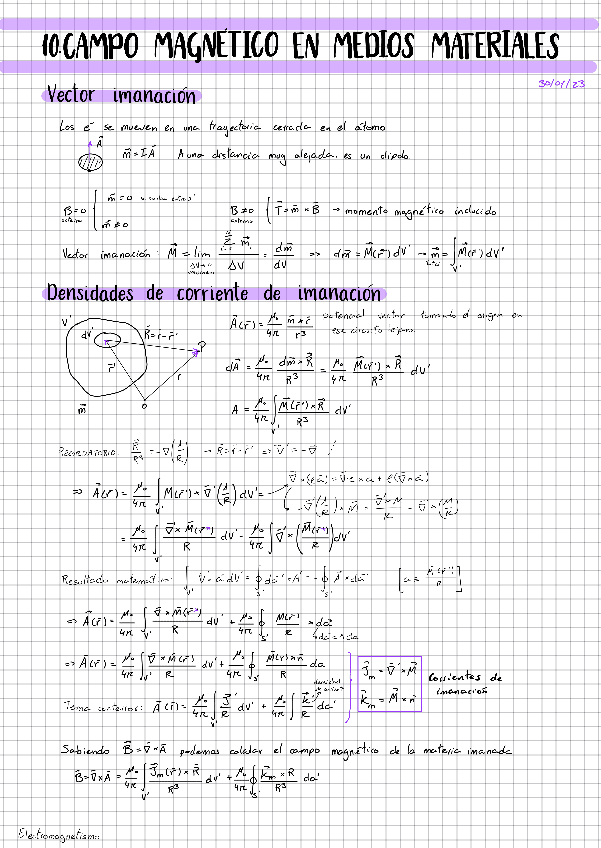 10. CAMPO MAGNÉTICO EN MEDIOS MATERIALES
30/01/23
Vector imanación
Los e⁻ se mueven en una trayectoria cerrada en el átomo
A⃗
m⃗ = I A⃗ A una distancia muy alejada, es un dipolo
B=0 externo { m⃗ = 0
m⃗ ≠ 0
B≠0 externo { T⃗ = m⃗ × B⃗ → momento magnético inducido
Vector imanación: M⃗ = lim ΔV→0 Σ m⃗ᵢ / ΔV = dm⃗/dV => dm⃗ = M⃗(r⃗') dV' → m⃗ = ∫_V' M⃗(r⃗') dV'
Densidades de corriente de imanación
V' dV' R⃗ = r - r' P r⃗' r O m⃗
A⃗(r⃗) = μ₀/4π m⃗ × r⃗ / r³ potencial vector tomando el origen en
ese circuito
dA⃗ = μ₀/4π dm⃗ × R⃗ / R³ = μ₀/4π M⃗(r') × R⃗ / R³ dV'
A = μ₀/4π ∫_V' M⃗(r') × R⃗ / R³ dV'
RECORDATORIO: R⃗/R³ = -∇(1/R) → R = r - r' => ∇' = -∇
∇⃗ × (φ a⃗) = ∇φ × a + φ(∇ × a⃗)
=> A⃗(r⃗) = μ₀/4π ∫_V' M(r') × ∇⃗'(1/R) dV' =
∇⃗'(1/R) × M⃗ = ∇⃗' × M / R - ∇⃗ × (M/R)
= μ₀/4π ∫_V' ∇⃗ × M⃗(r') / R dV' - μ₀/4π ∫_V' ∇⃗' × (M⃗(r')/R) dV'
Resultado matemático:
=> A⃗(r⃗) = μ₀/4π ∫_V' ∇⃗ × M⃗(r') / R dV' + μ₀/4π ∮_S' M(r') / R × da⃗'
=> A⃗(r⃗) = μ₀/4π ∫_V' ∇⃗ × M⃗(r') / R dV' + μ₀/4π ∮_S' M⃗(r') × n / R da
J⃗m = ∇⃗' × M⃗
k⃗m = M⃗ × n⃗
Corrientes de
imanación
Tema anterior: A⃗(r⃗) = μ₀/4π ∫_V' J⃗'/R dV' + μ₀/4π ∫ k⃗/R da'
Sabiendo B⃗ = ∇⃗ × A⃗ podemos calcular el campo magnético de la materia imanada
B⃗ = ∇⃗ × A⃗ = μ₀/4π ∫_V' J⃗m(r') × R⃗ / R³ dV' + μ₀/4π ∮_S' k⃗m × R / R³ da'
Electromagnetismo